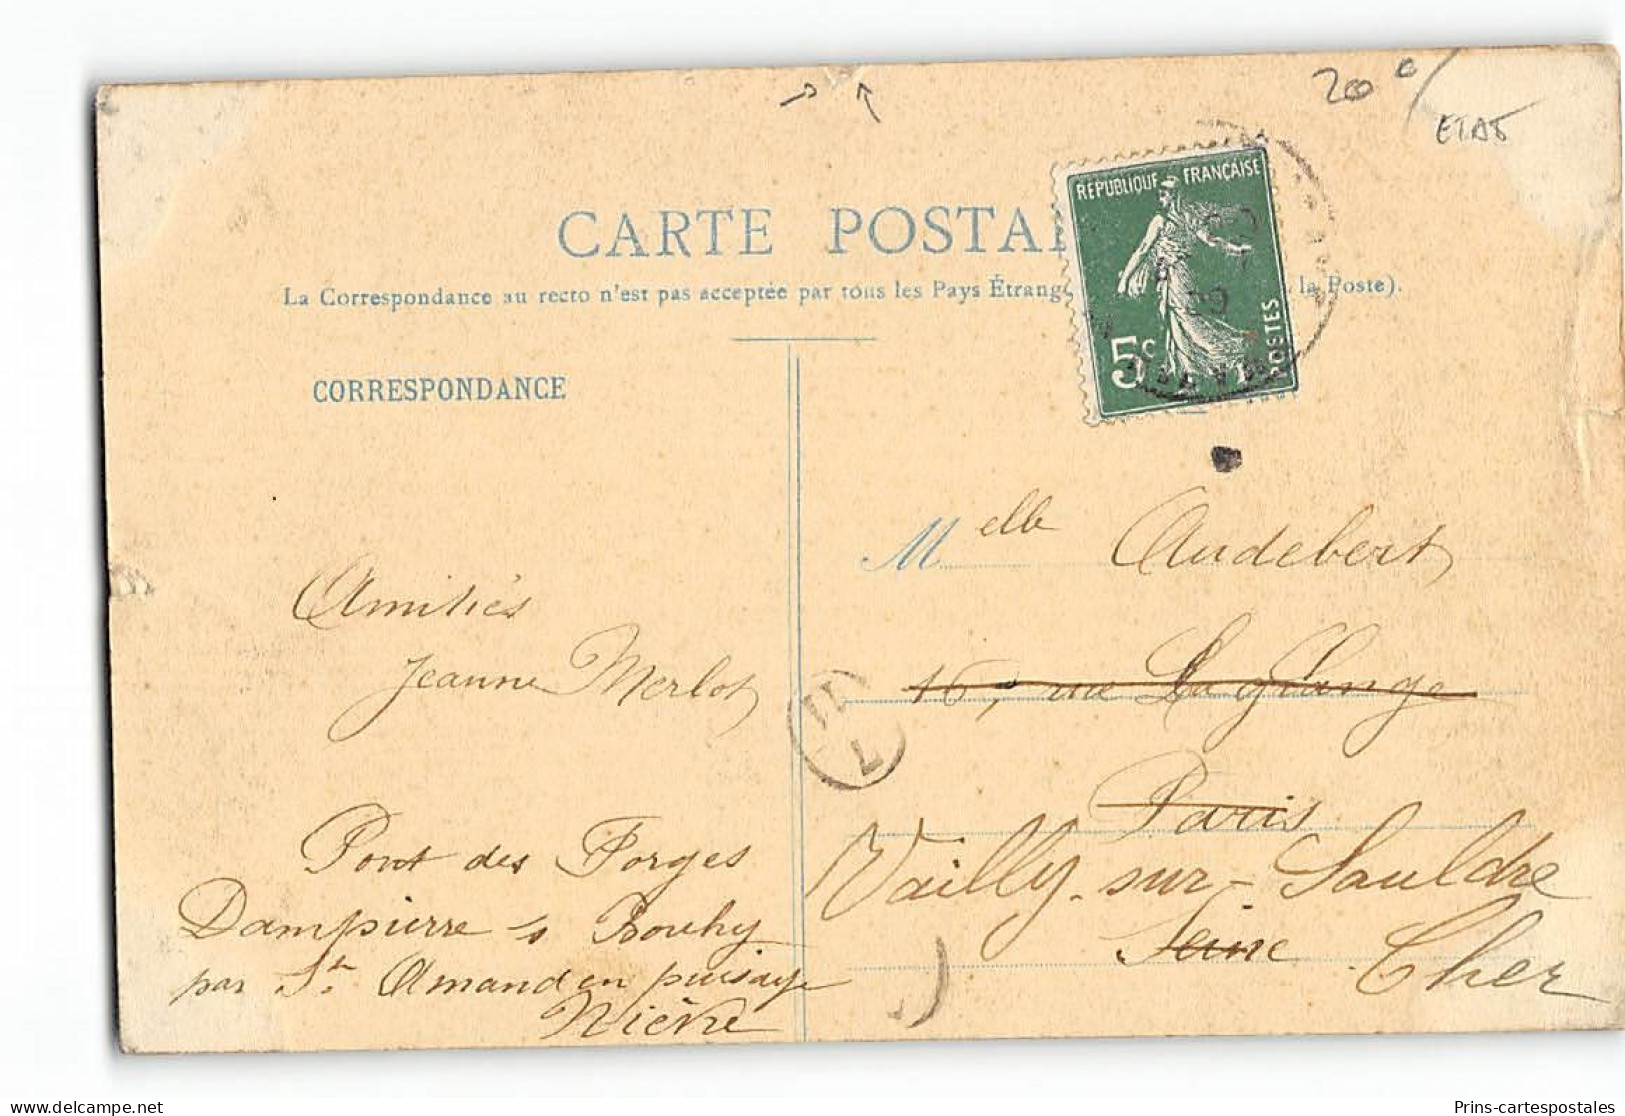 20 e/
ETAT
CARTE POSTA
La Correspondance au recto n'est pas acceptée par tous les Pays Étrang
la Poste).
REPUBLIQUE FRANÇAISE
5c
POSTES
09
CORRESPONDANCE
Amitiés
Jeanne Merlot
Pont des Forges
Dampierre s Bouhy
par St. Amand en puisaye
Nièvre
Melle Audebert
16, rue La Grange
Paris
Vailly-sur-Sauldre
Seine Cher
11
7
Prins-cartespostales